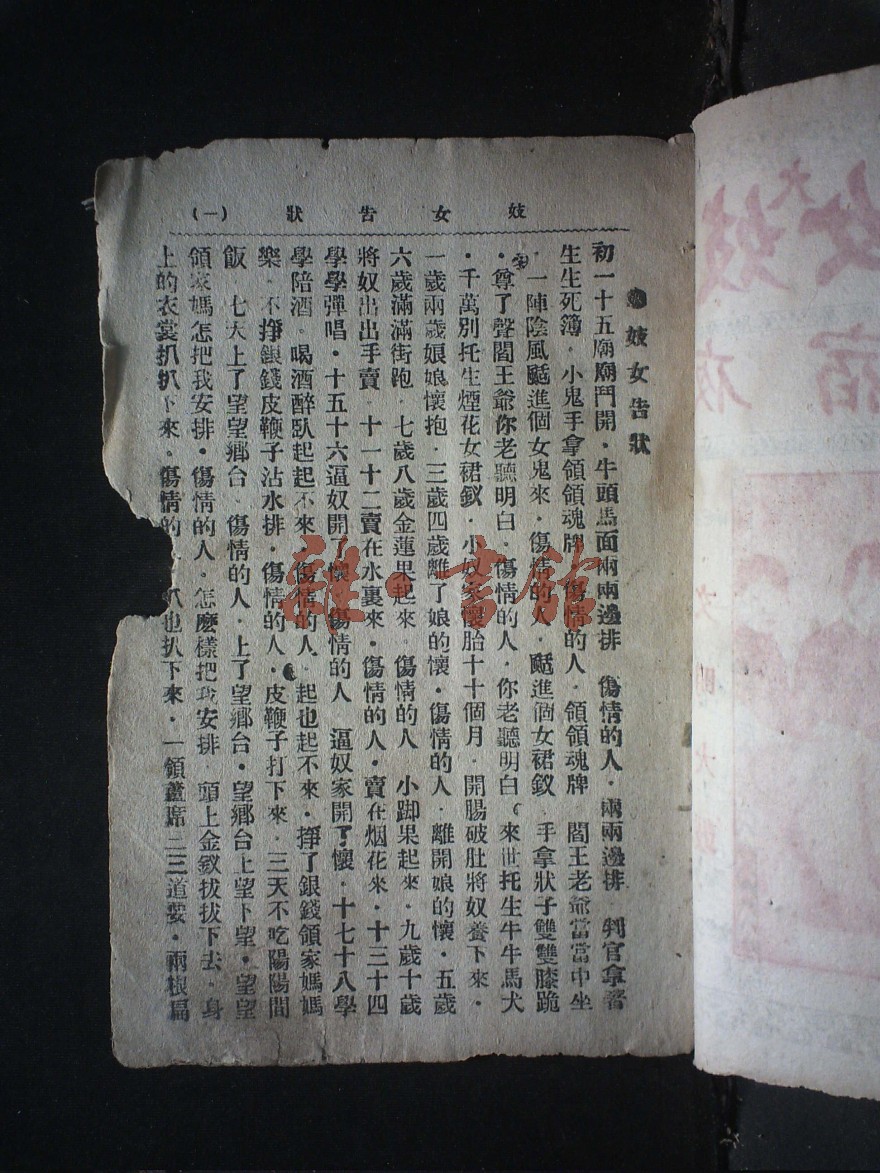 妓女告狀 (一)
妓女告狀
初一十五廟廟門開・牛頭馬面兩兩邊排 傷情的人・兩兩邊排 判官拿著
生生死簿・小鬼手拿領領魂牌 傷情的人・領領魂牌 閻王老爺當當中坐
・一陣陰風颳進個女鬼來・傷情的人・颳進個女裙釵 手拿狀子雙雙膝跪
・尊了聲閻王爺你老聽明白・傷情的人・你老聽明白 來世托生牛牛馬犬
・千萬別托生煙花女裙釵・小奴家懷胎十十個月・開腸破肚將奴養下來・
一歲兩歲娘娘懷抱・三歲四歲離了娘的懷・傷情的人・離開娘的懷・五歲
六歲滿滿街跑・七歲八歲金蓮果起來・傷情的人 小脚果起來・九歲十歲
將奴出出手賣・十一十二賣在水裏來・傷情的人・賣在烟花來・十三十四
學學彈唱・十五十六逼奴開了懷・傷情的人 逼奴家開了懷・十七十八學
學陪酒。喝酒醉臥起起不來・傷情的人・起也起不來・掙了銀錢領家媽媽
樂・不掙銀錢皮鞭子沾水排・傷情的人・皮鞭子打下來・三天不吃陽陽間
飯 七天上了望望鄉台・傷情的人・上了望鄉台・望鄉台上望下望・望望
領家媽怎把我安排・傷情的人・怎麼樣把我安排 頭上金釵拔拔下去・身
上的衣裳扒扒下來。傷情的 扒也扒下來・一領蘆席三三道要・兩根扁
雜・書館